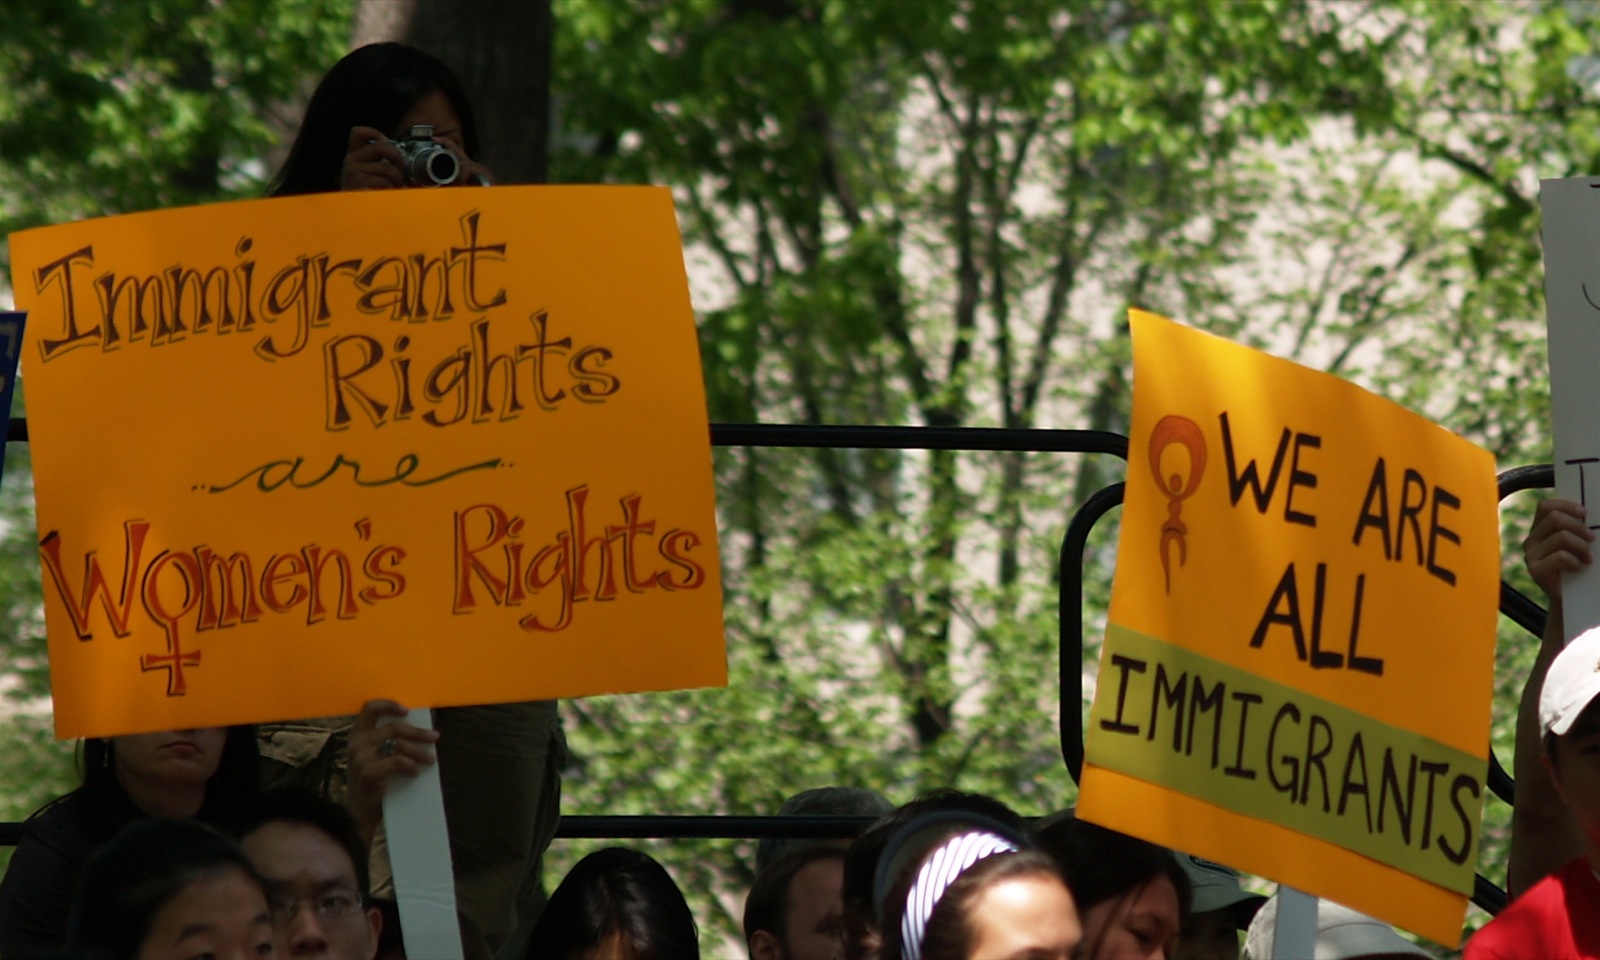 Immigrant
Rights
are
Women's Rights
WE ARE
ALL
IMMIGRANTS